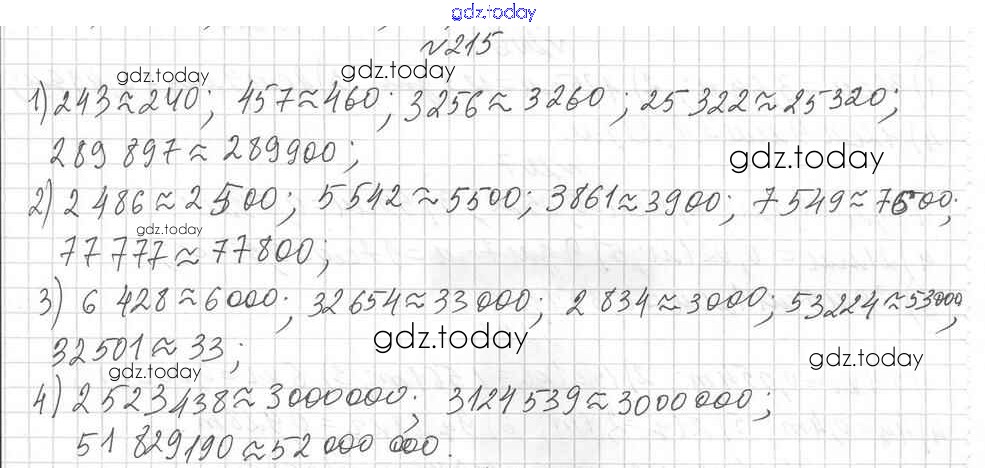 gdz.today
№215
gdz.today gdz.today
1) 243≈240; 457≈460; 3256≈3260; 25 322≈25320;
289 897≈289900;
gdz.today
2) 2 486≈2500; 5 542≈5500; 3861≈3900; 7 549≈7500;
gdz.today
77 777≈77800;
3) 6 428≈6000; 32654≈33000; 2 834≈3000; 53224≈53000;
gdz.today
32501≈33;
gdz.today gdz.today
4) 2 523438≈3000000; 3124539≈3000000;
51 829190≈52 000 000.